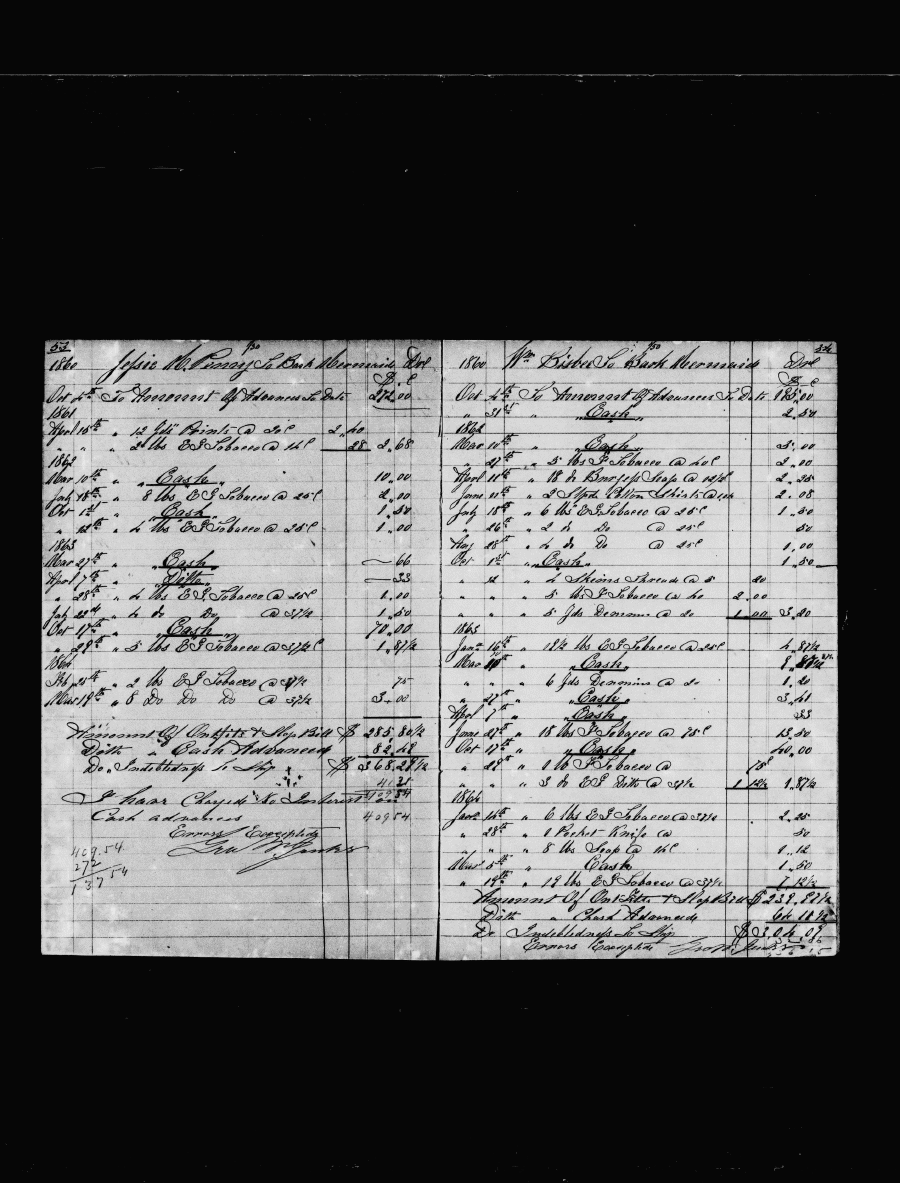 53
1/30
1860 Jessie M. Penny To Bark Mermaid Dr
$ . C
Oct 4th To Amount Of Advances To Date 272.00
1861
April 15th " 12 Yds Prints @ 20c 2.40
" " " 2 lbs E I Tobacco @ 14c 28 2.68
1862
Mar 10th " Cash " 10.00
July 18th " 8 lbs E I Tobacco @ 25c 2.00
Oct 1st " Cash " 1.50
" 12th " 4 lbs E I Tobacco @ 25c 1.00
1863
Mar 27th " Cash " 66
April 7th " Ditto " 33
" 28th " 4 lbs E I Tobacco @ 25c 1.00
July 22nd " 4 do Do @ 37½ 1.50
Oct 17th " Cash " 70.00
" 29th " 5 lbs E I Tobacco @ 37½c 1.87½
1864
Feb 25th " 2 lbs E I Tobacco @ 37½ 75
Mar 19th " 8 Do Do Do @ 37½ 3.00
Amount Of Outfits & Slop Bill $ 285.80½
Ditto " Cash Advanced 82.49
Do. Indebtedness To Ship $ 368.29½
41 25
I have Charged No Interest 409 54
Cash advances 409 54
Errors Excepted
409.54
272
137 54
54
1/30
1860 Wm Bisbee To Bark Mermaid Dr
$ - C
Oct 4th To Amount Of Advances To Date 185.00
" 31st " Cash " 2.50
1862
Mar 10th " Cash " 5.00
" 27th " 5 lbs I Tobacco @ 40c 2.00
April 11th " 18 do Burgess Soap @ 12½c 2.25
June 11th " 2 Cotton Shirts @ 2.08
July 18th " 6 lbs E I Tobacco @ 25c 1.50
" 26th " 2 do Do @ 25c 50
Aug 28th " 4 do Do @ 25c 1.00
Oct 1st " Cash " 1.50
" 12 " 4 Skeins Thread @ 5 20
" " " 5 lbs I Tobacco @ 40 2.00
" " " 5 Yds Denims @ 20 1.00 3.20
1863
Jany 16th " 19½ lbs E I Tobacco @ 25c 4.87½
Mar 10th " Cash "
" " " 6 Yds Denims @ 20 1.20
" 27th " Cash " 3.41
April 7th " Cash " 33
June 27th " 18 lbs I Tobacco @ 75c 13.50
Oct 17th " Cash " 40.00
" 29th " 1 lb I Tobacco @ 75c
" " " 3 do E I Ditto @ 37½ 1 12½ 1.87½
1864
Jany 14th " 6 lbs E I Tobacco @ 37½ 2.25
" 28th " 1 Pocket Knife @ 50
" " " 8 lbs Soap @ 14c 1.12
Mar 5th " Cash 1.50
" 19th " 19 lbs E I Tobacco @ 37½ 7.12½
Amount Of Outfits & Slop Bill $ 239.87½
Ditto " Cash Advanced
Do Indebtedness To Ship $ 304.09
Errors Excepted